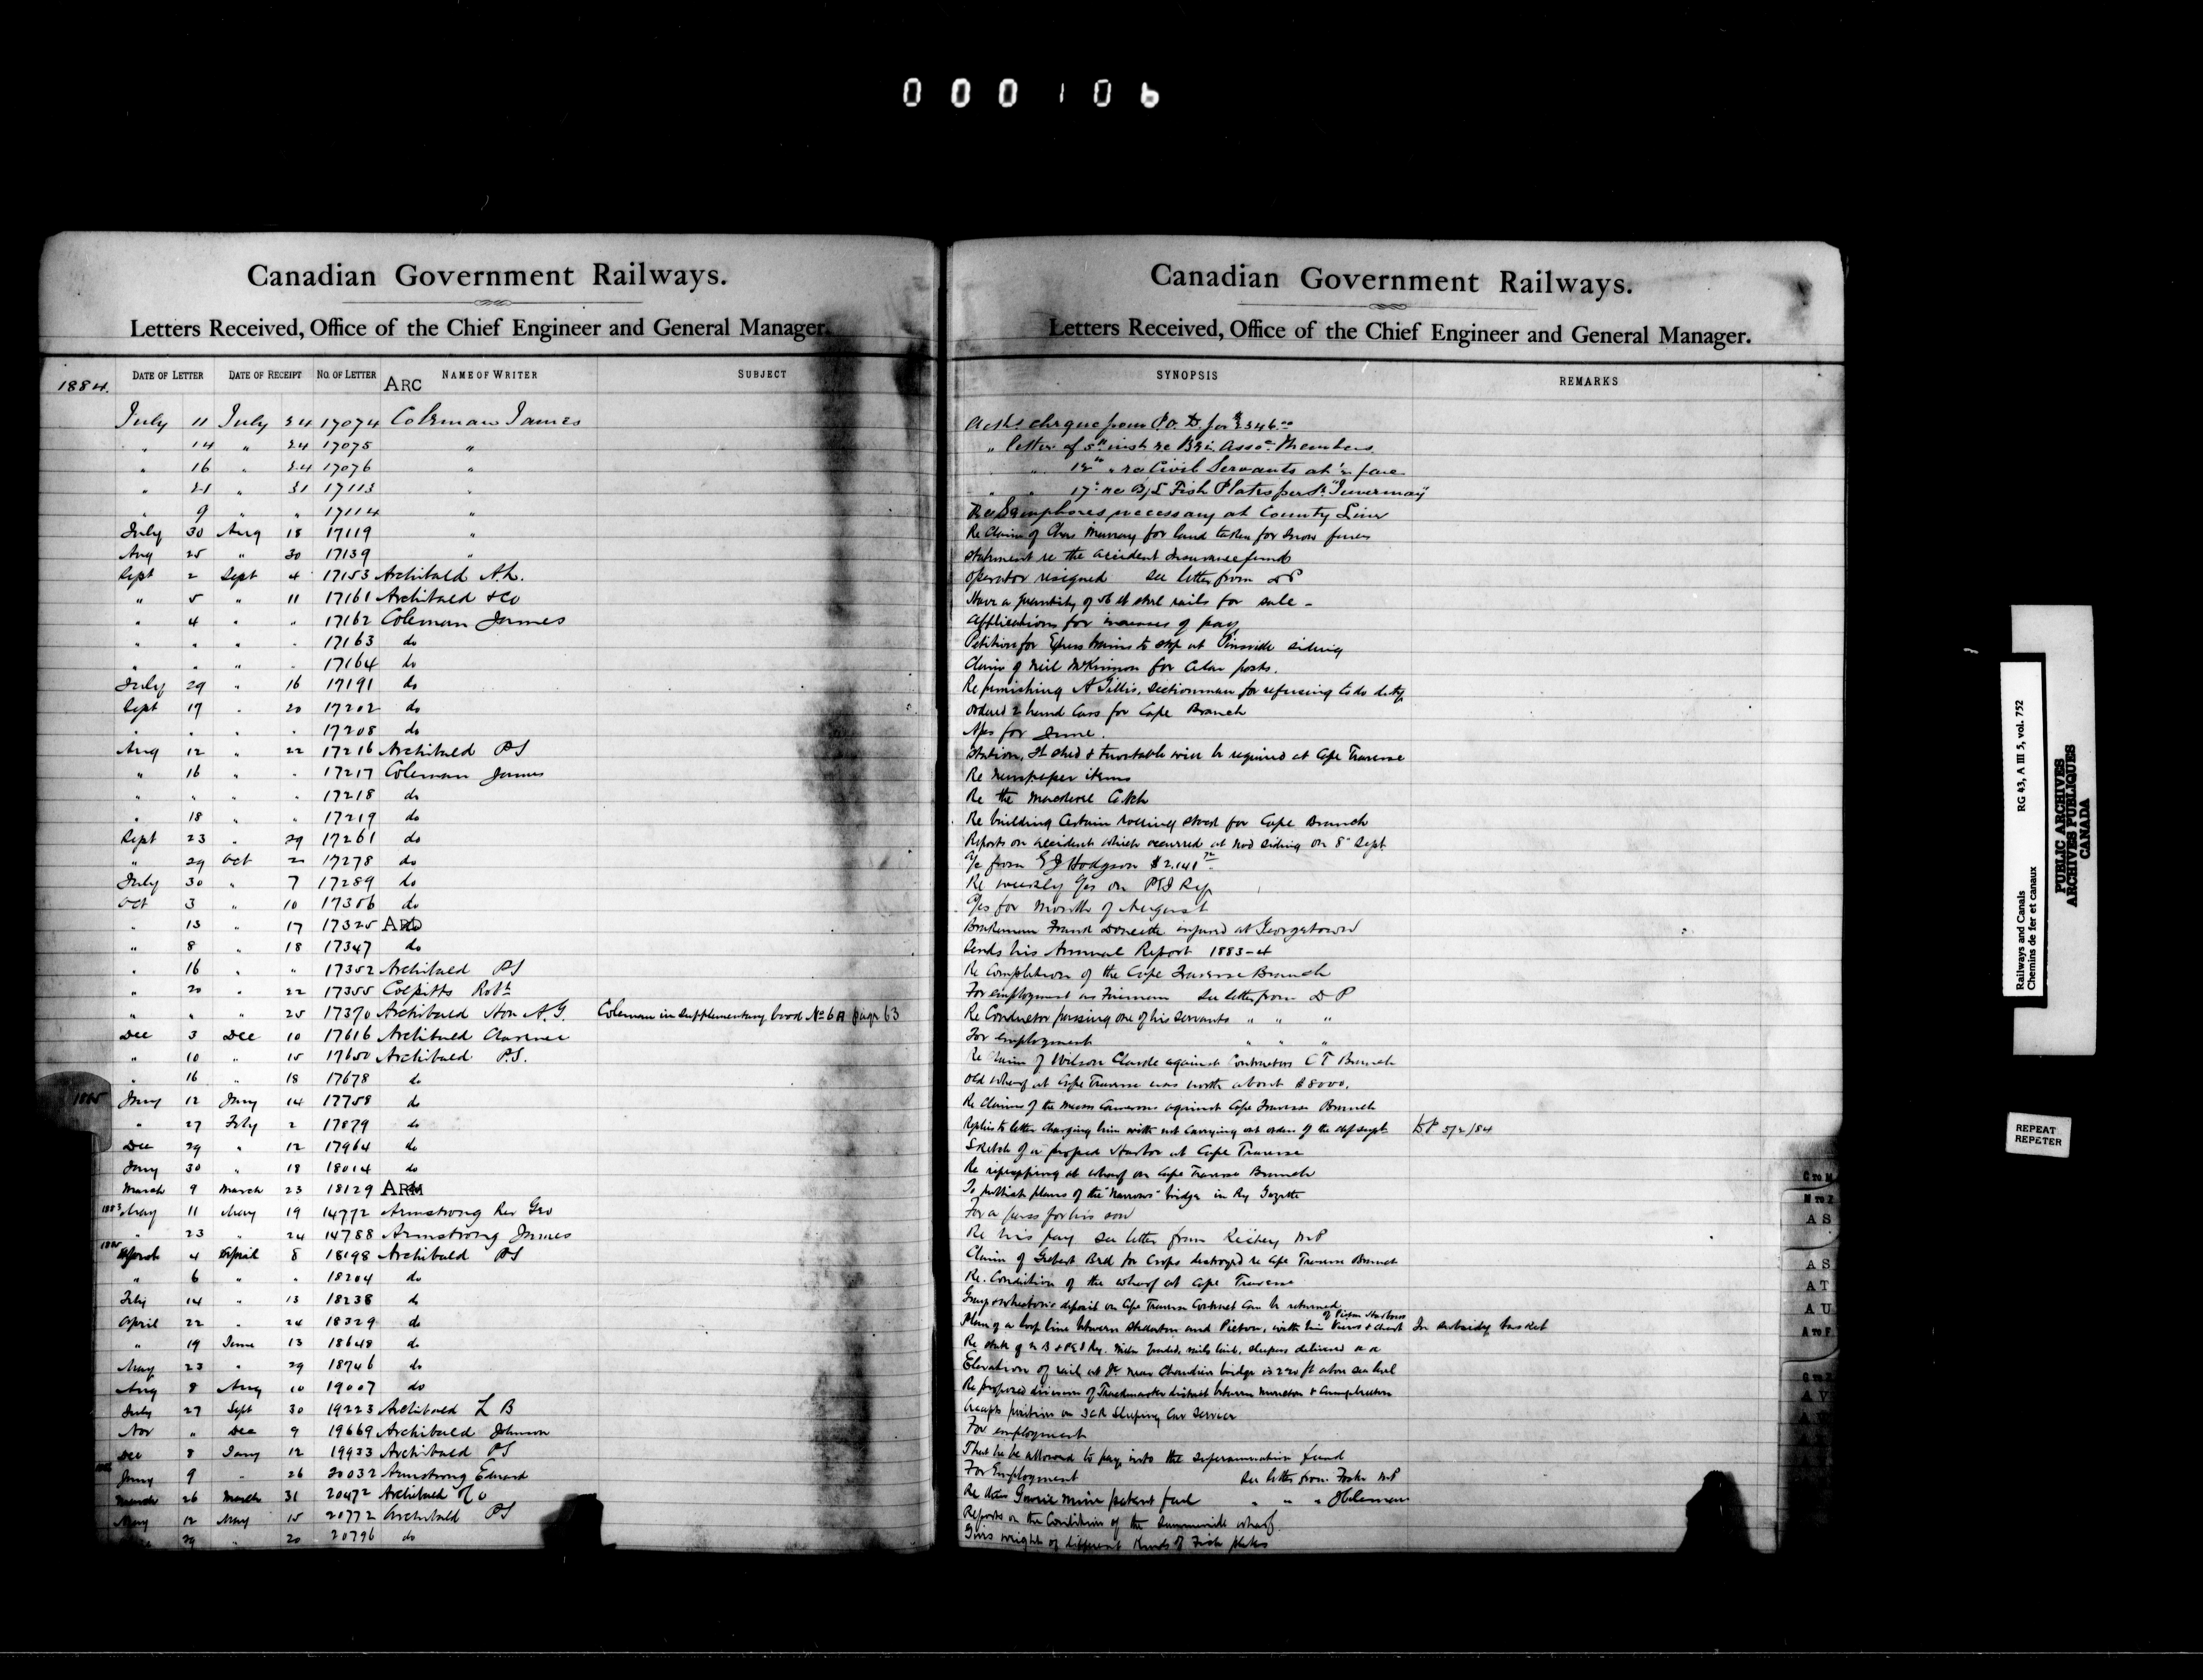 000106
Canadian Government Railways.
Letters Received, Office of the Chief Engineer and General Manager.
1884. DATE OF LETTER DATE OF RECEIPT NO. OF LETTER ARC NAME OF WRITER SUBJECT
July 11 July 24 17074 Coleman James
" 14 " 24 17075 "
" 16 " 24 17076 "
" 21 " 31 17113 "
" 9 " " 17114 "
July 30 Aug 18 17119 "
Aug 25 " 30 17139 "
Sept 2 Sept 4 17153 Archibald A.L.
" 5 " 11 17161 Archibald & Co
" 4 " " 17162 Coleman James
" " " " 17163 do
" " " " 17164 do
July 29 " 16 17191 do
Sept 17 " 20 17202 do
" " " " 17208 do
Aug 12 " 22 17216 Archibald PS
" 16 " " 17217 Coleman James
" " " " 17218 do
" 18 " " 17219 do
Sept 23 " 29 17261 do
" 29 Oct 2 17278 do
July 30 " 7 17289 do
Oct 3 " 10 17306 do
" 13 " 17 17325 ARC do
" 8 " 18 17347 do
" 16 " " 17352 Archibald PS
" 20 " 22 17355 Colpitts Robt
" " " 25 17370 Archibald Hon A.G. Coleman in supplementary book No 6A page 63
Dec 3 Dec 10 17616 Archibald Clarence
" 10 " 15 17650 Archibald P.S.
" 16 " 18 17678 do
1885 Jany 12 Jany 14 17758 do
" 27 Feby 2 17879 do
Dec 29 " 12 17964 do
Jany 30 " 18 18014 do
March 9 March 23 18129 ARM do
1883 May 11 May 19 14772 Armstrong Rev Geo
" 23 " 24 14788 Armstrong James
1885 March 4 April 8 18198 Archibald PS
" 6 " " 18204 do
Feby 14 " 13 18238 do
April 22 " 24 18329 do
" 19 June 13 18648 do
May 23 " 29 18746 do
Aug 8 Aug 10 19007 do
July 27 Sept 30 19223 Archibald L B
Nov " Dec 9 19669 Archibald Johnson
Dec 8 Jany 12 19933 Archibald PS
Jany 9 " 26 20032 Armstrong Edward
March 26 March 31 20472 Archibald & Co
May 12 May 15 20772 Archibald PS
29 " 20 20796 do
Canadian Government Railways.
Letters Received, Office of the Chief Engineer and General Manager.
SYNOPSIS REMARKS
Acks cheque from P.O. D. for $2346.00
" letter of 5th inst re Brit Assoc. Members
" " 12th " re Civil Servants at ½ fare
" " 17th re B/L Fish Plates per S.S. "Invermay"
Re Semaphores necessary at County Line
Re Claim of Chas Murray for land taken for snow fences
Statement re the accident Insurance funds
Operator resigned See letter from DP
Have a quantity of 56 lb steel rails for sale -
Applications for increases of pay
Petition for Express trains to stop at siding
Claim of Neil McKinnon for Cedar posts.
Re punishing A Gillis, Sectionman for refusing to do duty
Ordered 2 hand Cars for Cape Branch
A/cs for June.
Station, shed & turntable will be required at Cape Traverse
Re newspaper items
Re the Mackerel Catch
Re building Certain rolling stock for Cape Branch
Reports on accident which occurred at siding on 8th Sept
A/c from E J Hodgson $2,141
Re weekly A/cs on PEI Ry
A/cs for month of August
Brakeman Frank injured at Georgetown
Sends his Annual Report 1883-4
Re Completion of the Cape Traverse Branch
For employment as Fireman See letter from D P
Re Conductor passing one of his servants " " "
For employment " " "
Re Claim of Wilson against Contractors C T Branch
Old wharf at Cape Traverse was worth about $8000.
Re Claims of the Messrs Cameron against Cape Traverse Branch
Replies to letter charging him with not Carrying out orders of the dept DP 5/2/84
Sketch of a proposed Harbor at Cape Traverse
Re ripraping at wharf on Cape Traverse Branch
To publish plans of the "Narrows" bridge in Ry Gazette
For a pass for his son
Re his pay See letter from Richey M.P
Claim of for Crops destroyed re Cape Traverse Branch
Re. Condition of the wharf at Cape Traverse
deposit on Cape Traverse Contract Can be returned
Plan of a loop line between Stellarton and Pictou, with of Pictou Harbour & Chart In subsidy basket
Re graded, rails laid, sleepers delivered
Elevation of rail at near Chaudiere bridge is 220 ft above sea level
Re proposed division of Trackmaster district between Moncton & Campbellton
Accepts position on ICR Sleeping Car Service
For employment
That he be allowed to pay into the Superannuation fund
For Employment See letter from Foster M.P
Re Gowrie mine patent fuel " " "
Reports on the Condition of the Summerside wharf.
Gives weight of different Kinds of Fish plates
C TO M
M TO Z
A S
A S
A T
A U
A TO F
G TO Z
A V
Railways and Canals RG 43, A III 5, vol. 752
Chemins de fer et canaux
PUBLIC ARCHIVES
ARCHIVES PUBLIQUES
CANADA
REPEAT
REPETER